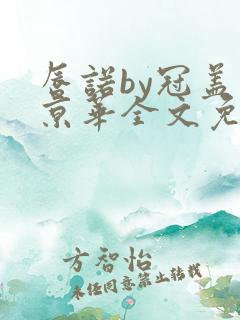 唇諾by冠盖
京華全文免
方智怡
未经同意禁止转载